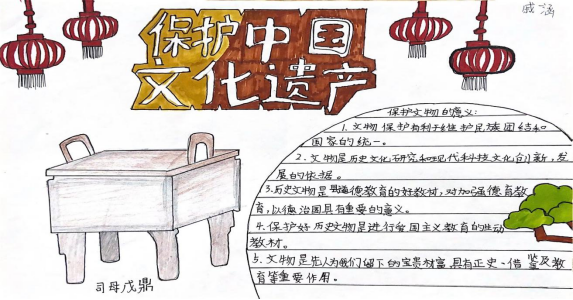 戚涵
保护中国
文化遗产
保护文物的意义:
1.文物保护有利于维护民族团结和
国家的统一。
2.文物是历史文化研究和现代科技文化创新,发
展的依据。
3.历史文物是道德教育的好教材,对加强德育教
育,以德治国具有重要的意义。
4.保护好历史文物是进行爱国主义教育的生动
教材。
5.文物是先人为我们留下的宝贵材富,具有正史、借鉴及教
育等重要作用。
司母戊鼎